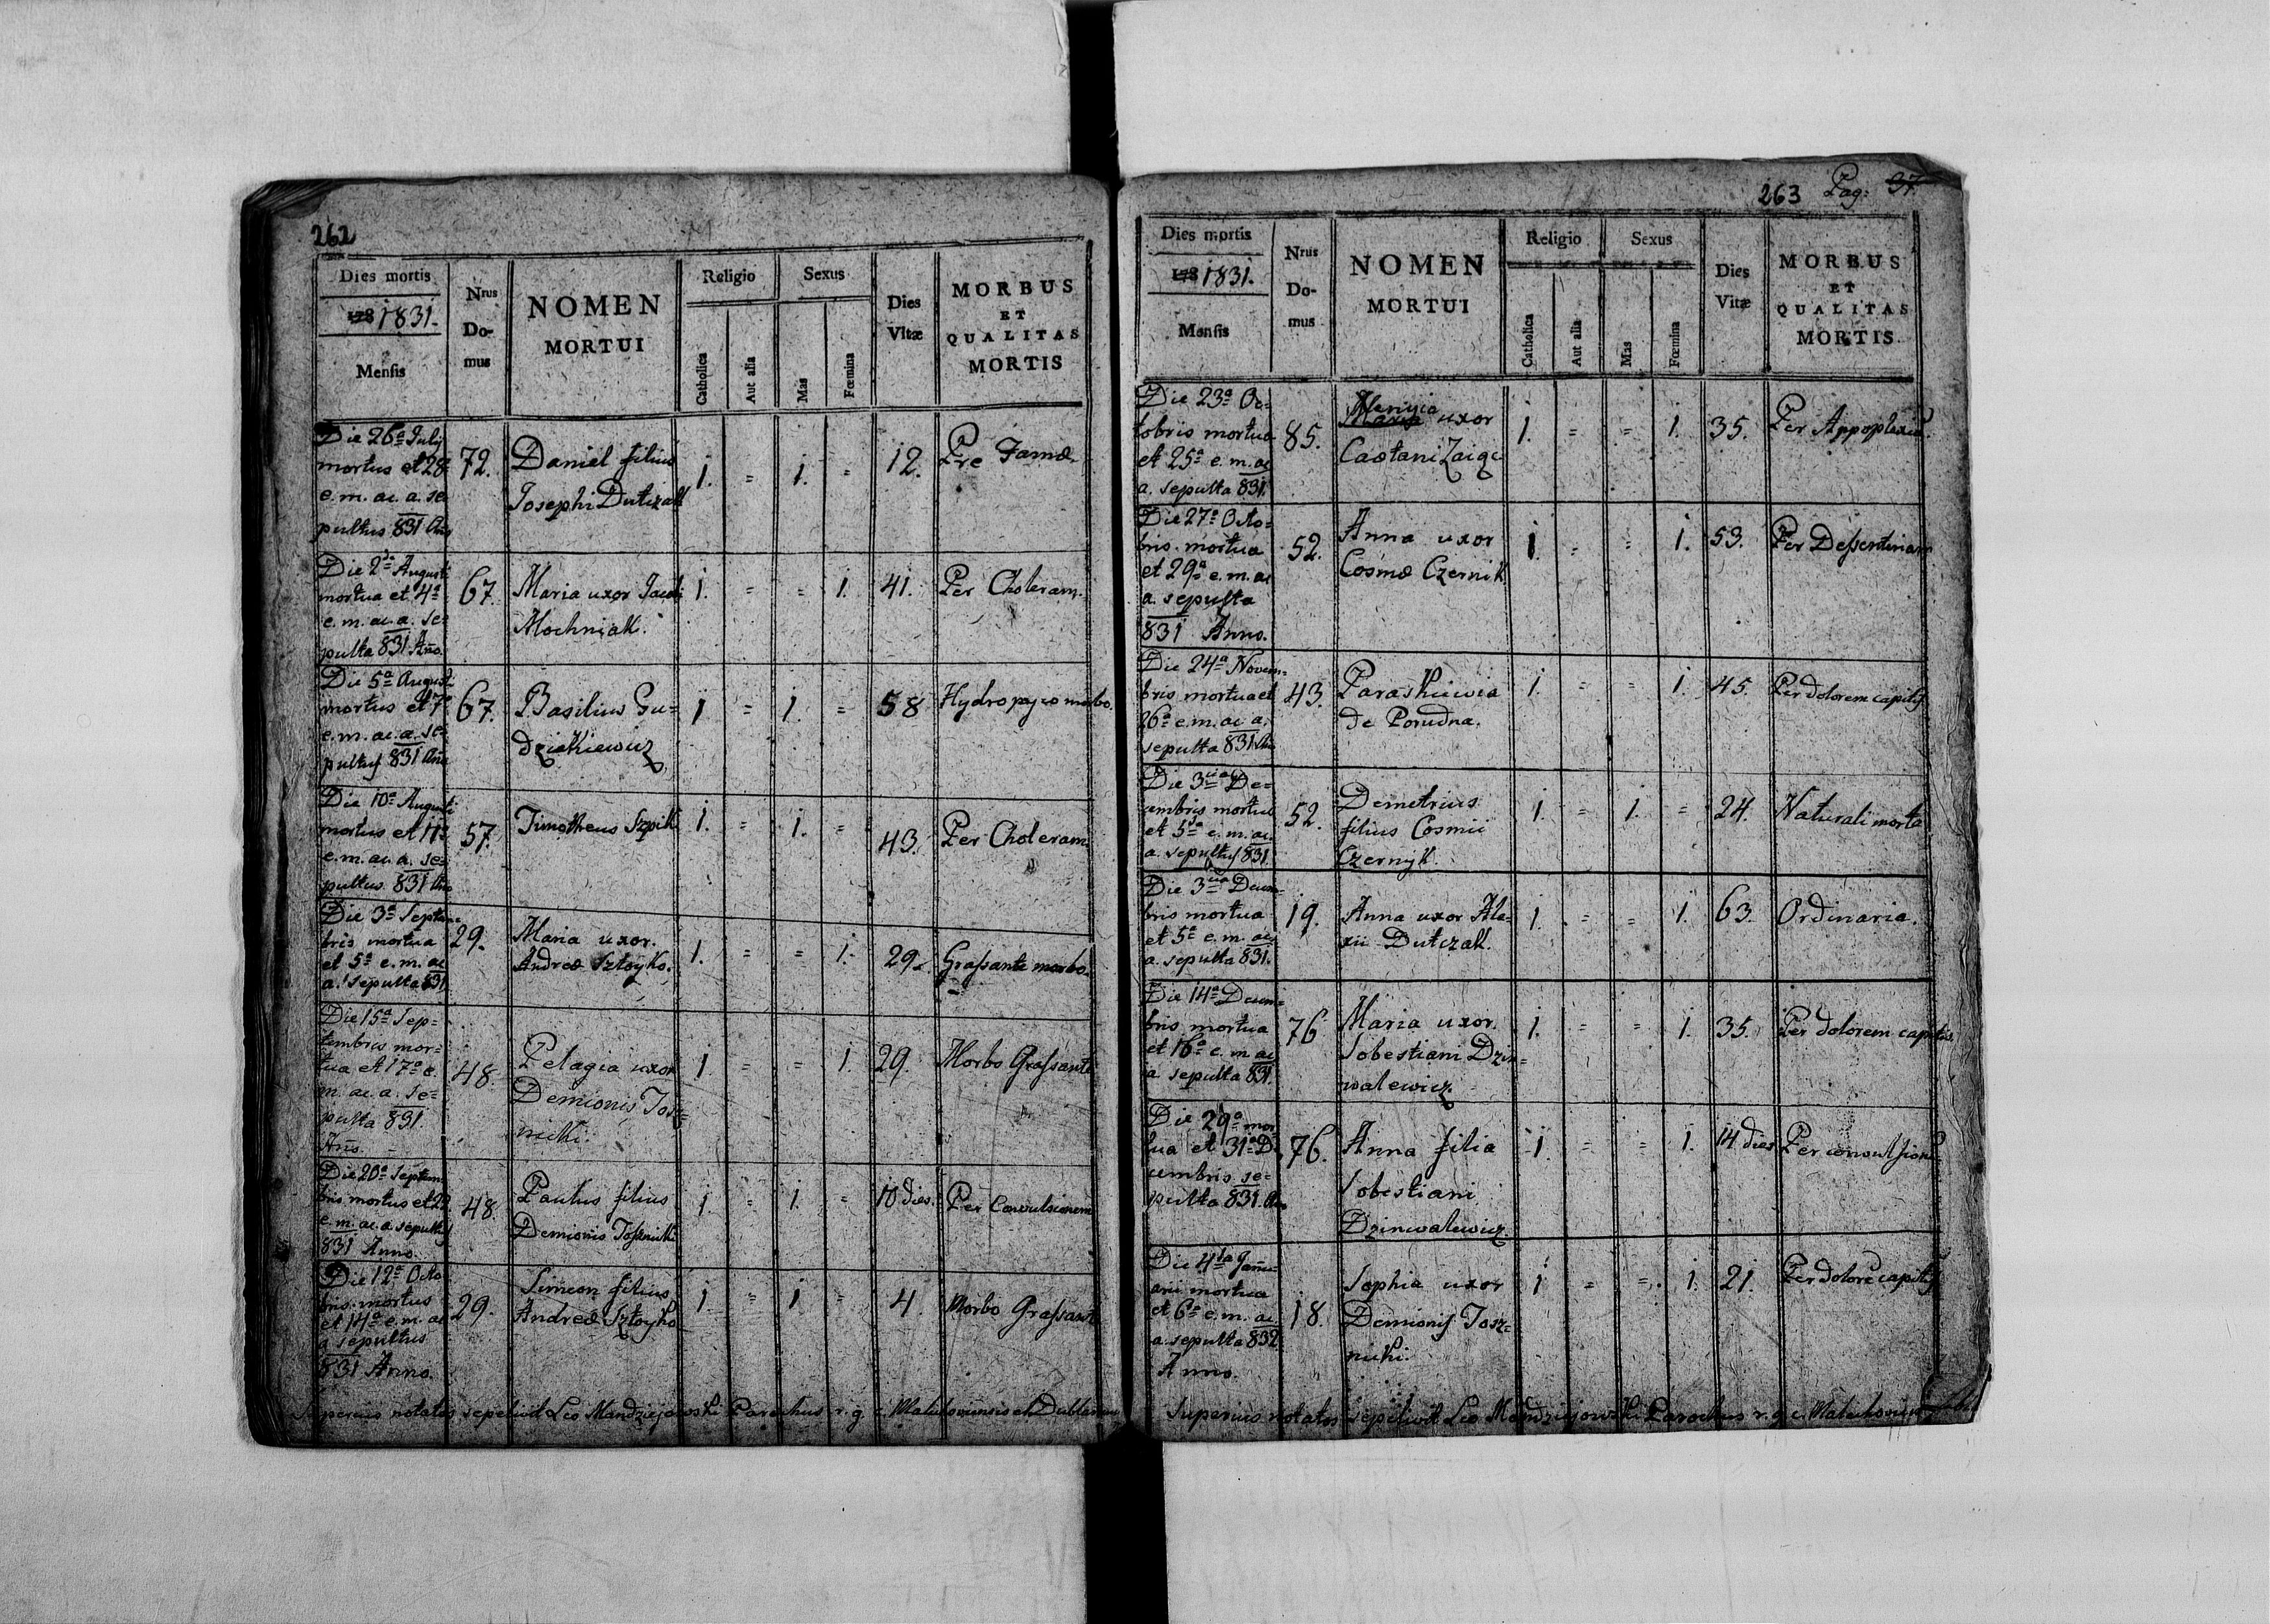 262
Dies mortis
1831.
Mensis
Nrus
Do-
mus
NOMEN
MORTUI
Religio
Catholica
Aut alia
Sexus
Mas
Fœmina
Dies
Vitæ
MORBUS
ET
QUALITAS
MORTIS
Die 26a July
mortus et 28
e. m. ac. a. se
pultus 831 Ano
72.
Daniel filius
Josephi Dutczak
1. = 1. =
12.
Pre Famæ
Die 2da Augusti
mortua et 4a
e. m. ac. a. se=
pulta 831 Ano.
67.
Maria uxor Jacobi
Mochniak.
1. = = 1.
41.
Per Choleram.
Die 5a August
mortus et 7a
e. m. ac. a. se=
pultus 831 Ano
67.
Basilius Gu=
dziekiewicz
1 = 1. =
58
Hydropyco morbo.
Die 10a Augusti
mortus et 11a
e. m. ac. a. se=
pultus 831 Ano
57.
Timotheus Szpik
1. = 1. =
43.
Per Choleram
Die 3a Septem=
bris mortua
et 5a e. m. ac
a. sepulta 831
29.
Maria uxor.
Andreæ Sztoyko.
1. = = 1.
29.
Grassante morbo.
Die 15a Sep=
tembris mor=
tua et 17a e.
m. ac. a. se=
pulta 831.
Ano.
48.
Pelagia uxor
Demionis Josz=
nicki.
1. = = 1.
29.
Morbo Grassante
Die 20a Septem
bris mortus et 22
e. m. ac. a. sepultus
831 Anno.
48.
Paulus filius
Demionis Josznicki
1. = 1. =
10 dies.
Per Convulsionem
Die 12a Octo
bris mortus
et 14a e. m. ac
a sepultus
831 Anno.
29.
Simeon filius
Andreæ Sztoyko
1. = 1 =
4.
Morbo Grassante
Superius notatos sepelivit Leo Mandziejowski Parochus r. g. c. Malechoviensis et
263 Pag: 37.
Dies mortis
1831.
Mensis
Nrus
Do-
mus
NOMEN
MORTUI
Religio
Catholica
Aut alia
Sexus
Mas
Fœmina
Dies
Vitæ
MORBUS
ET
QUALITAS
MORTIS
Die 23a Oc=
tobris mortua
et 25a e. m. ac
a. sepulta 831.
85.
uxor
Caetani
1. = = 1.
35.
Per Appoplexia.
Die 27a Octo=
bris mortua
et 29a e. m. ac
a. sepulta
831 Anno.
52.
Anna uxor
Cosmæ Czernik
1. = = 1.
53.
Per Dessentiriam
Die 24a Novem=
bris mortua et
26a e. m. ac a.
sepulta 831 Ano
43.
Paraskiewia
de Porudna.
1. = = 1.
45.
Per dolorem capitis
Die 3tia De=
cembris mortus
et 5ta e. m. ac
a. sepultus 831
52.
Demetrius
filius Cosmii
Czernyk.
1. = 1. =
24.
Naturali morte
Die 3tia Decem=
bris mortua
et 5a e. m. ac
a. sepulta 831.
19.
Anna uxor Ale=
xii Dutczak.
1. = = 1.
63.
Ordinaria.
Die 14a Decem=
bris mortua
et 16a e. m. ac
a sepulta 831.
76
Maria uxor.
Sobestiani Dzin=
walewicz.
1. = = 1.
35.
Per dolorem capitis.
Die 29a mor
tua et 31a De
cembris se=
pulta 831. Ano
76.
Anna filia
Sobestiani
Dzinwalewicz.
1. = = 1.
14 dies
Per convulsione
Die 4ta Janu=
arii mortua
et 6a e. m. ac
a. sepulta 832
Anno.
18.
Sophia uxor
Demionis Josz=
nicki.
1 = = 1.
21.
Per dolore capitis
Superius notatos sepelivit Leo Mandziejowski Parochus r. g. c.